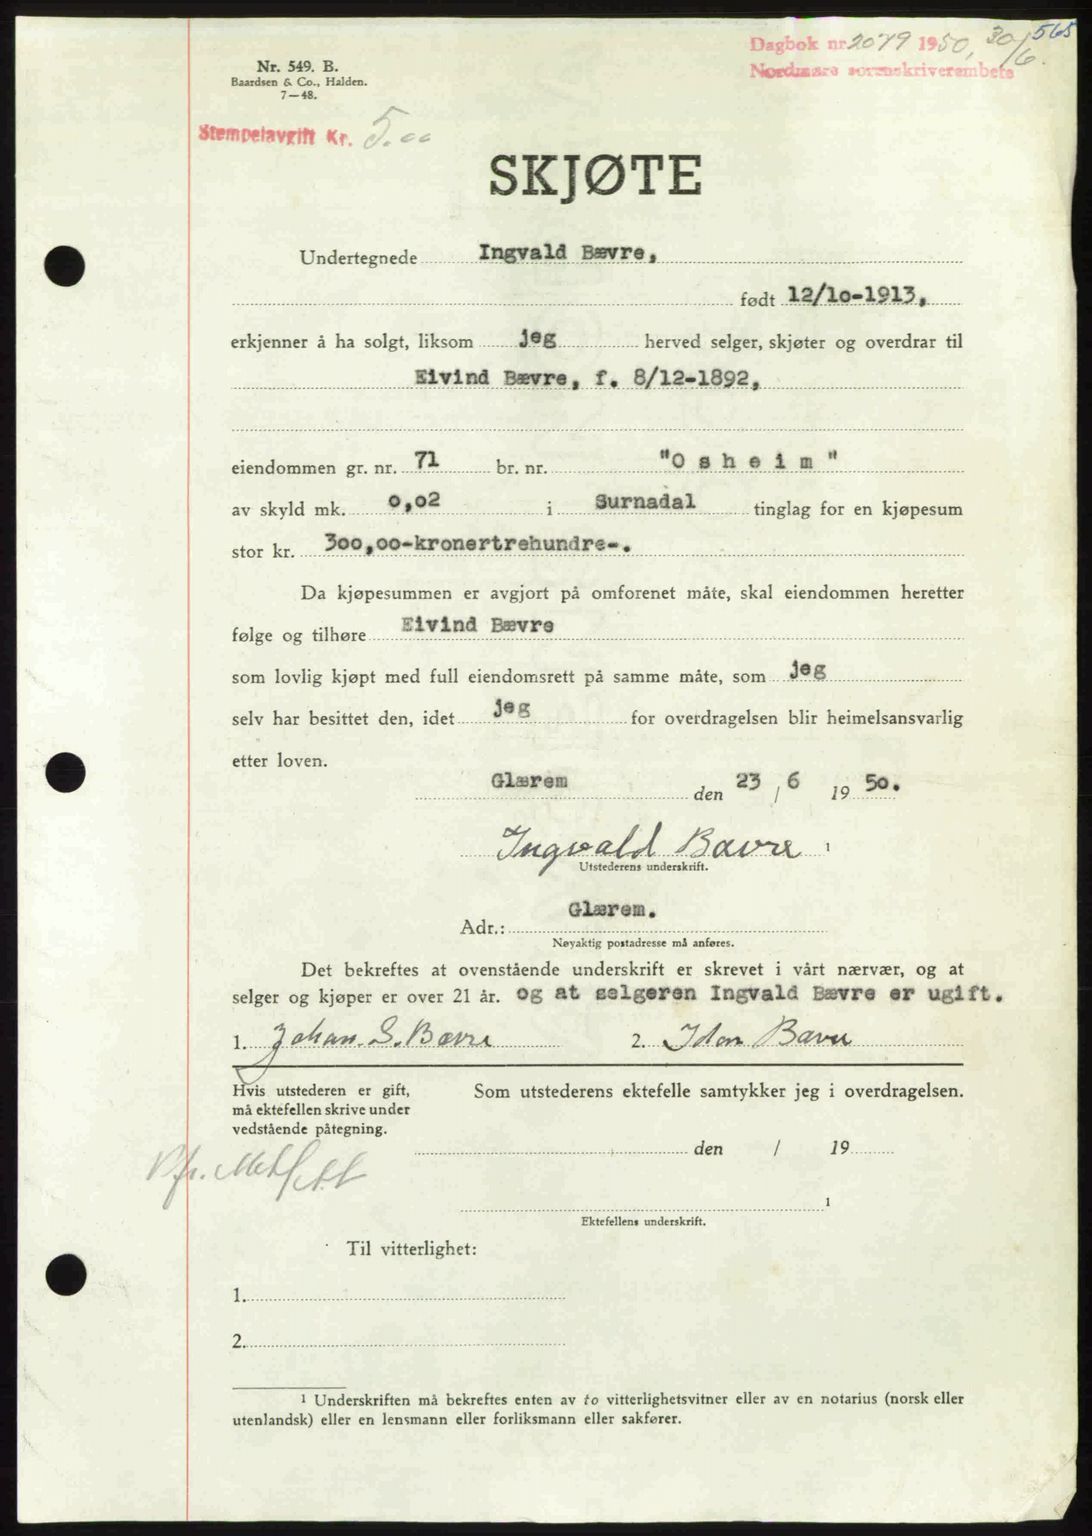 565
Dagbok nr. 2079 1950, 30/6.
Nordmøre sorenskriverembete
Nr. 549. B.
Baardsen & Co., Halden.
7—48.
Stempelavgift Kr. 5.00
SKJØTE
Undertegnede Ingvald Bævre,
født 12/10-1913,
erkjenner å ha solgt, liksom jeg herved selger, skjøter og overdrar til
Eivind Bævre, f. 8/12-1892,
eiendommen gr. nr. 71 br. nr. "Osheim"
av skyld mk. 0,02 i Surnadal tinglag for en kjøpesum
stor kr. 300,00-kronertrehundre-.
Da kjøpesummen er avgjort på omforenet måte, skal eiendommen heretter
følge og tilhøre Eivind Bævre
som lovlig kjøpt med full eiendomsrett på samme måte, som jeg
selv har besittet den, idet jeg for overdragelsen blir heimelsansvarlig
etter loven.
Glærem den 23 / 6 19 50.
Ingvald Bævre 1
Utstederens underskrift.
Glærem.
Adr.:
Nøyaktig postadresse må anføres.
Det bekreftes at ovenstående underskrift er skrevet i vårt nærvær, og at
selger og kjøper er over 21 år. og at selgeren Ingvald Bævre er ugift.
1. Johan. S. Bævre 2. Bævre
Hvis utstederen er gift, Som utstederens ektefelle samtykker jeg i overdragelsen.
må ektefellen skrive under
vedstående påtegning.
den / 19
1
Ektefellens underskrift.
Til vitterlighet:
1.
2.
1 Underskriften må bekreftes enten av to vitterlighetsvitner eller av en notarius (norsk eller
utenlandsk) eller en lensmann eller forliksmann eller sakfører.